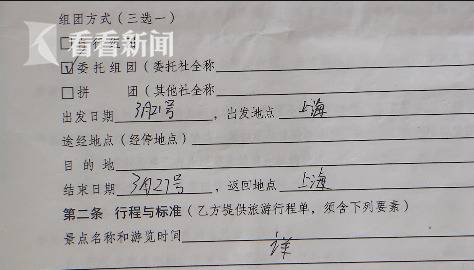 组团方式（三选一）
看看新闻
☑委托组团（委托社全称
□拼 团（其他社全称
出发日期 3月21号 ，出发地点 上海
途经地点（经停地点）
目 的 地
结束日期 3月27号 ，返回地点 上海
第二条 行程与标准（乙方提供旅游行程单，须含下列要素）
景点名称和游览时间 详